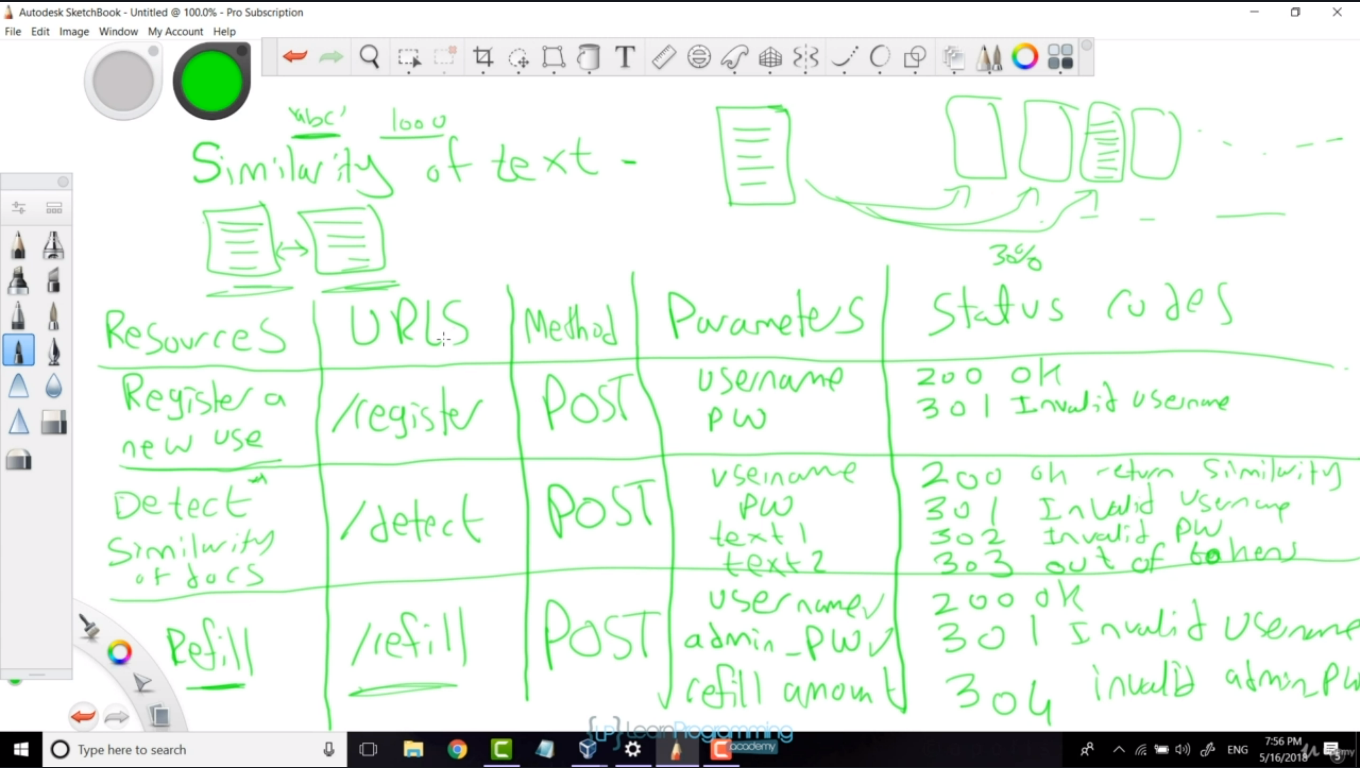 Autodesk SketchBook - Untitled @ 100.0% - Pro Subscription
File Edit Image Window My Account Help
T
'abc' 1000
Similarity of text -
30%
Resources URLS Method Parameters Status codes
Register a
new use
/register
POST
username
PW
200 OK
301 Invalid username
Detect
Similarity
of docs
/detect
POST
username
PW
text1
text2
200 ok return Similarity
301 Invalid Username
302 Invalid PW
303 out of tokens
Refill
/refill
POST
username
admin_PW
refill amount
200 OK
301 Invalid Username
304 invalid admin_PW
{LP} LearnProgramming
academy
Type here to search
ENG
7:56 PM
5/16/2018